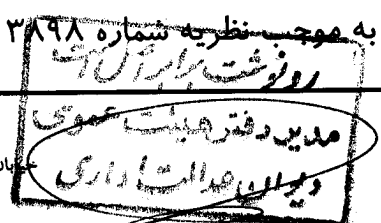 به موجب نظریه شماره ۳۸۹۸
رونوشت برابر اصل است
مدیر دفتر هیئت عمومی
دیوان عدالت اداری